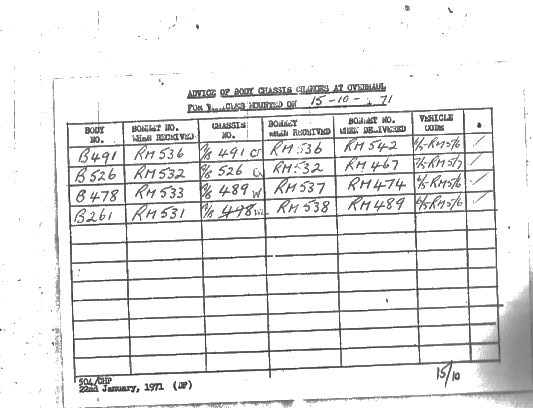 ADVICE OF BODY CHASSIS CHANGES AT OVERHAUL
FOR MOUNTED ON 15-10-71
BODY NO. BONNET NO. WHEN RECEIVED CHASSIS NO. BONNET WHEN RECEIVED BONNET NO. WHEN DELIVERED VEHICLE CODE *
B491 RM536 491 RM536 RM542 RM5/6 ✓
B526 RM532 526 RM532 RM467 RM5/7 ✓
B478 RM533 489 W RM537 RM474 RM5/6 ✓
B261 RM531 478 RM538 RM489 RM5/6 ✓
504/CHP
22nd January, 1971 (DF)
15/10